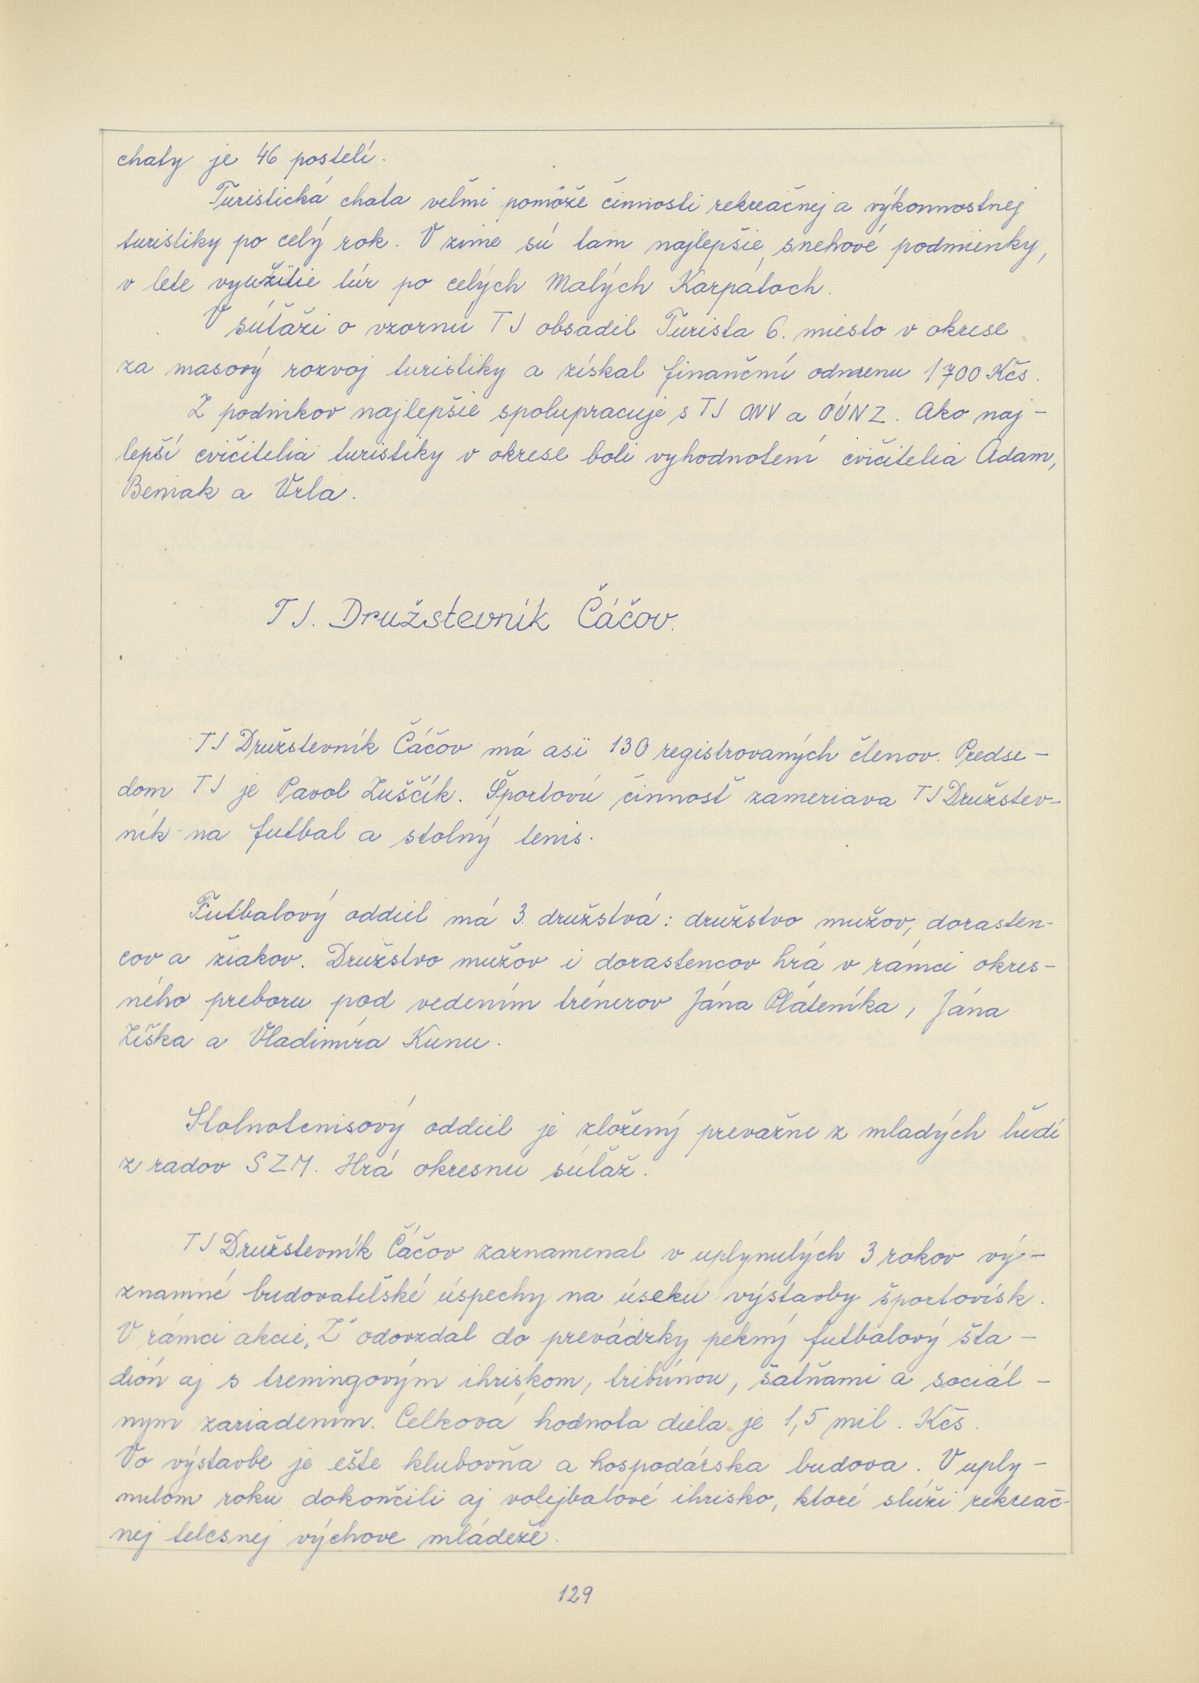 chaty je 46 postelí.
Turistická chata veľmi pomôže činnosti rekreačnej a výkonnostnej
turistiky po celý rok. V zime sú tam najlepšie snehové podmienky,
v lete využitie túr po celých Malých Karpátoch.
V súťaži o vzornu TJ obsadil Turista 6. miesto v okrese
za masový rozvoj turistiky a získal finančnú odmenu 1700 Kčs.
Z podnikov najlepšie spolupracuje s TJ ONV a OÚNZ. Ako naj-
lepší cvičitelia turistiky v okrese boli vyhodnotení cvičitelia Adam,
Beniak a Vrla.
TJ. Družstevník Čáčov.
TJ Družstevník Čáčov má asi 130 registrovaných členov. Predse-
dom TJ je Pavol Zuščík. Športovú činnosť zameriava TJ Družstev-
ník na futbal a stolný tenis.
Futbalový oddiel má 3 družstvá: družstvo mužov, dorasten-
cov a žiakov. Družstvo mužov i dorastencov hrá v rámci okres-
ného preboru pod vedením trénerov Jána Pláteníka, Jána
Žiška a Vladimíra Kunu.
Stolnotenisový oddiel je zložený prevažne z mladých ľudí
z radov SZM. Hrá okresnu súťaž.
TJ Družstevník Čáčov zaznamenal v uplynulých 3 rokov vý-
znamné budovateľské úspechy na úseku výstavby športovísk.
V rámci akcie "Z" odovzdal do prevádzky pekný futbalový šta-
dión aj s treningovým ihriskom, tribúnou, šatňami a sociál-
nym zariadením. Celková hodnota diela je 1,5 mil. Kčs.
Vo výstavbe je ešte klubovňa a hospodárska budova. V uply-
nulom roku dokončili aj volejbalové ihrisko, ktoré slúži rekreač-
nej telesnej výchove mládeže.
129